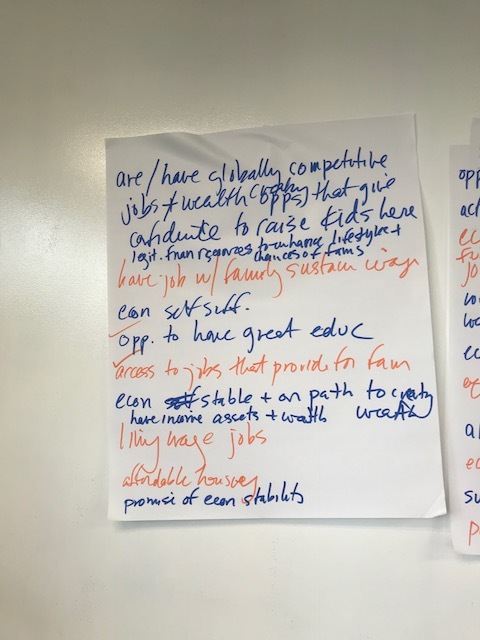 are/have globally competitive
jobs + wealth creating opps) that give
confidence to raise kids here
legit. finan resources to enhance lifestyle +
chances of fams
have job w/ family sustain wage
econ self suff.
opp. to have great educ
access to jobs that provide for fam
econ stable + on path to creating
have income assets + wealth wealth
living wage jobs
affordable housing
promise of econ stability
opp
ec
fu
jo
ec
al
ec
su
p